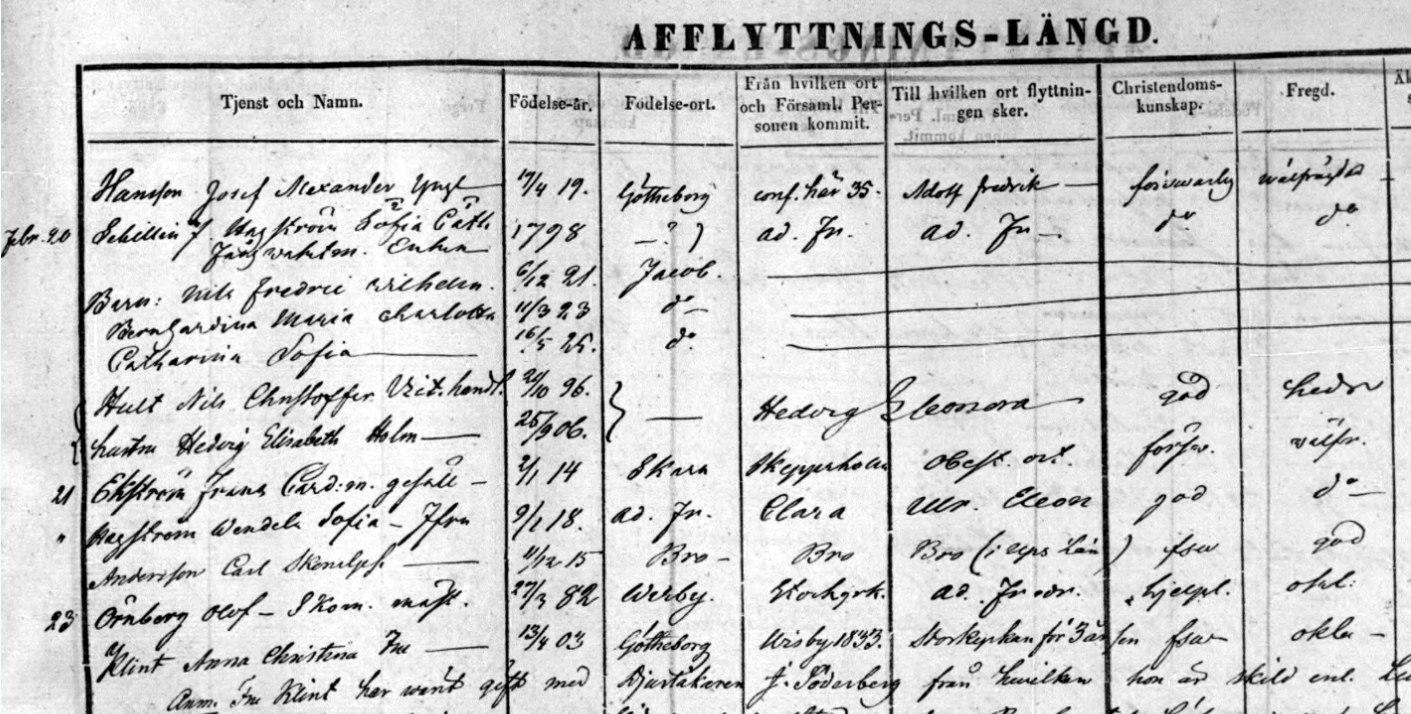 AFFLYTTNINGS-LÄNGD.
Tjenst och Namn. Födelse-år. Födelse-ort. Från hvilken ort och Församl. Personen kommit. Till hvilken ort flyttningen sker. Christendomskunskap. Fregd.
Hansson Josef Alexander Yngl 17/4 19. Götheborg conf. här 35. Adolf fredrik försvarlig välfrägdad
Febr. 20 Schillin f. Hagström Sofia Cath 1798 — ? ) ad. Fr. ad. Fr — do do
Enkan
Barn: Nils Fredric Wilhelm. 6/12 21. Jacob.
Bernhardina Maria Charlotta 11/3 23 do
Catharina Sofia 16/5 25. do
Hult Nils Christoffer Vict. handl. 20/10 96. Hedvig Eleonora god heder
hustru Hedvig Elisabeth Holm 25/9 06.
21 Ekström Frans Card:m. gesäll 2/1 14 Skara Skeppsholm Obest. ort. försv. välfr.
" Hagström Wendela Sofia — Jfru 9/1 18. ad. Fr. Clara Ulr. Eleon god do
Andersson Carl 11/12 15 Bro — Bro Bro (i Ups Län) fsv god
23 Örnberg Olof — Skom. mäst. 27/3 82 Werby. Storkyrk. ad. Fredr. hjelpl. okl:
Klint Anna Christina Fru 13/4 03 Götheborg Wisby 1833. Storkyrkan för 3 år sen fsv okla —
Anm. Fru Klint har varit gift med J. Söderberg från hvilken hon är skild enl.